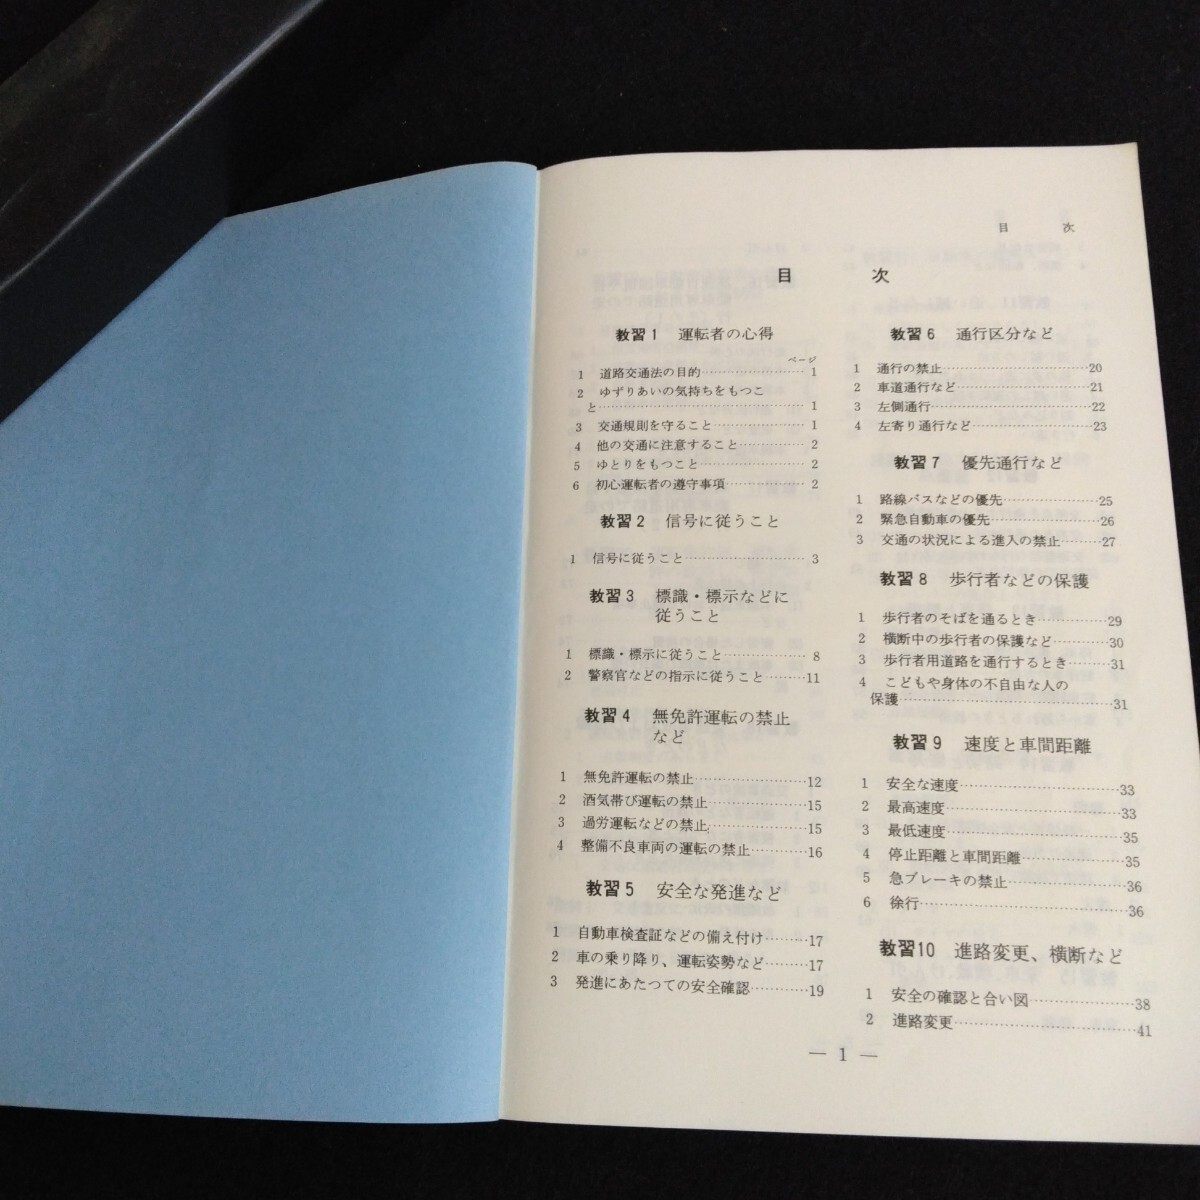 目 次
目 次
教習1 運転者の心得
ページ
1 道路交通法の目的…………………1
2 ゆずりあいの気持ちをもつこ
と……………………………………1
3 交通規則を守ること………………1
4 他の交通に注意すること…………2
5 ゆとりをもつこと…………………2
6 初心運転者の遵守事項……………2
教習2 信号に従うこと
1 信号に従うこと……………………3
教習3 標識・標示などに
従うこと
1 標識・標示に従うこと……………8
2 警察官などの指示に従うこと………11
教習4 無免許運転の禁止
など
1 無免許運転の禁止…………………12
2 酒気帯び運転の禁止………………15
3 過労運転などの禁止………………15
4 整備不良車両の運転の禁止………16
教習5 安全な発進など
1 自動車検査証などの備え付け………17
2 車の乗り降り、運転姿勢など………17
3 発進にあたつての安全確認…………19
教習6 通行区分など
1 通行の禁止…………………………20
2 車道通行など………………………21
3 左側通行……………………………22
4 左寄り通行など……………………23
教習7 優先通行など
1 路線バスなどの優先………………25
2 緊急自動車の優先…………………26
3 交通の状況による進入の禁止………27
教習8 歩行者などの保護
1 歩行者のそばを通るとき…………29
2 横断中の歩行者の保護など………30
3 歩行者用道路を通行するとき………31
4 こどもや身体の不自由な人の
保護……………………………………31
教習9 速度と車間距離
1 安全な速度…………………………33
2 最高速度……………………………33
3 最低速度……………………………35
4 停止距離と車間距離………………35
5 急ブレーキの禁止…………………36
6 徐行…………………………………36
教習10 進路変更、横断など
1 安全の確認と合い図………………38
2 進路変更……………………………41
— 1 —